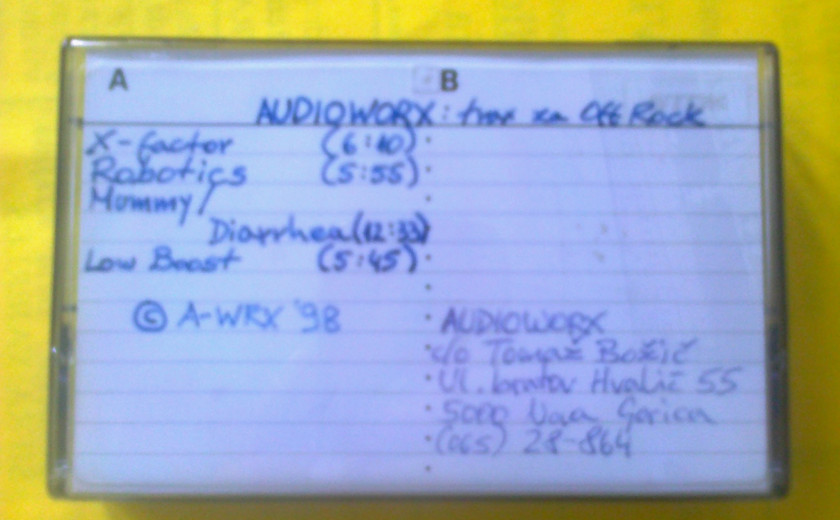 A B
AUDIOWORX: trax za Off Rock
X-factor (6:40)
Robotics (5:55)
Mummy/
Diarrhea (12:33)
Low Boost (5:45)
© A-WRX '98
AUDIOWORX
c/o Tomaž Božič
Ul. bratov Hvalič 55
5000 Nova Gorica
(065) 28-864